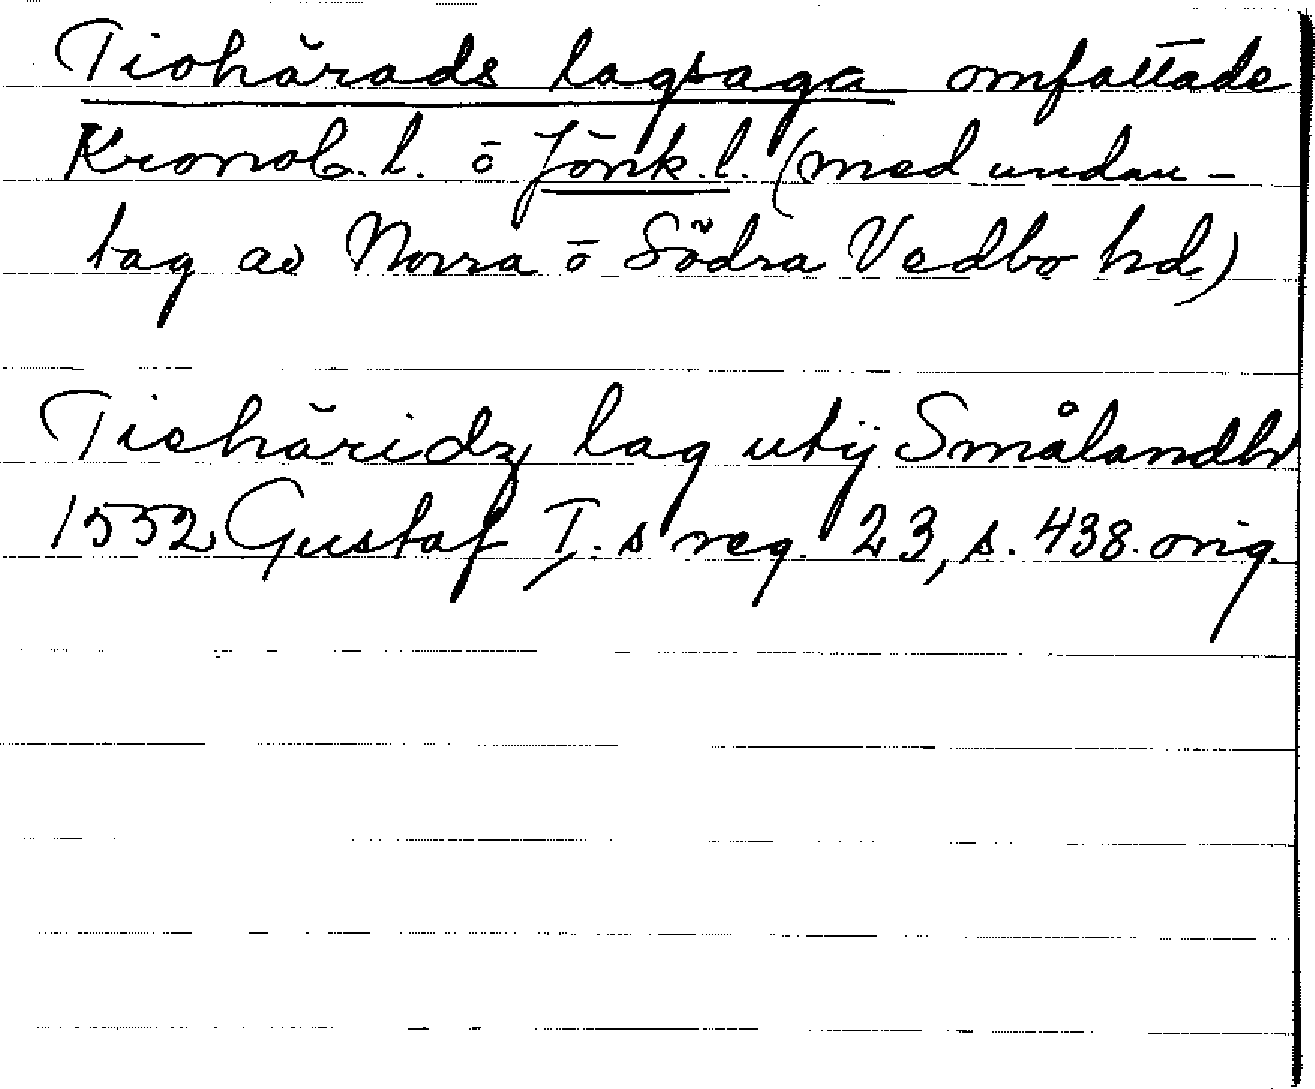 Tiohärads lagsaga omfattade
Kronob. l. o Jönk. l. (med undan-
tag av Norra o Södra Vedbo hd)
Tiehäridz lag utij Smålandh
1552 Gustaf I.s reg. 23, s. 438. orig.